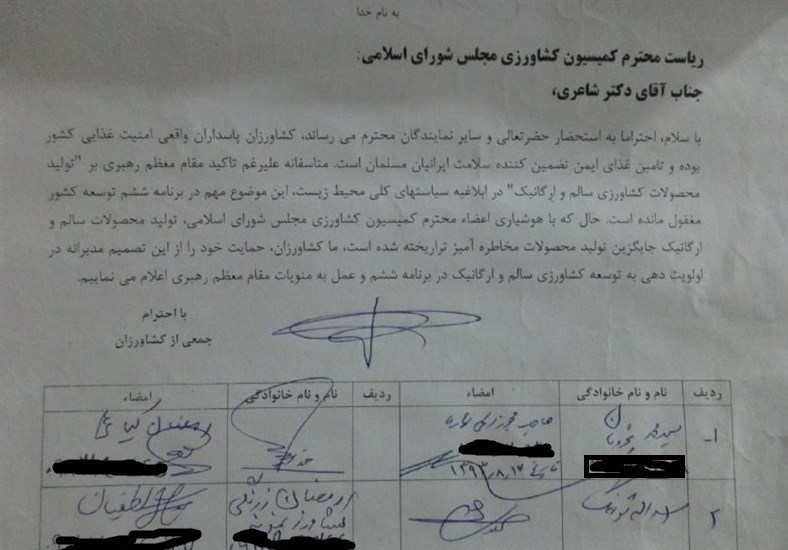 به نام خدا
ریاست محترم کمیسیون کشاورزی مجلس شورای اسلامی:
جناب آقای دکتر شاعری،
با سلام، احتراما به استحضار حضرتعالی و سایر نمایندگان محترم می رساند، کشاورزان پاسداران واقعی امنیت غذایی کشور
بوده و تامین غذای ایمن تضمین کننده سلامت ایرانیان مسلمان است. متاسفانه علیرغم تاکید مقام معظم رهبری بر "تولید
محصولات کشاورزی سالم و ارگانیک" در ابلاغیه سیاستهای کلی محیط زیست، این موضوع مهم در برنامه ششم توسعه کشور
مغفول مانده است. حال که با هوشیاری اعضاء محترم کمیسیون کشاورزی مجلس شورای اسلامی، تولید محصولات سالم و
ارگانیک جایگزین تولید محصولات مخاطره آمیز تراریخته شده است، ما کشاورزان، حمایت خود را از این تصمیم مدبرانه در
اولویت دهی به توسعه کشاورزی سالم و ارگانیک در برنامه ششم و عمل به منویات مقام معظم رهبری اعلام می نماییم.
با احترام
جمعی از کشاورزان
ردیف نام و نام خانوادگی امضاء ردیف نام و نام خانوادگی امضاء
۱-
۲ رمضان